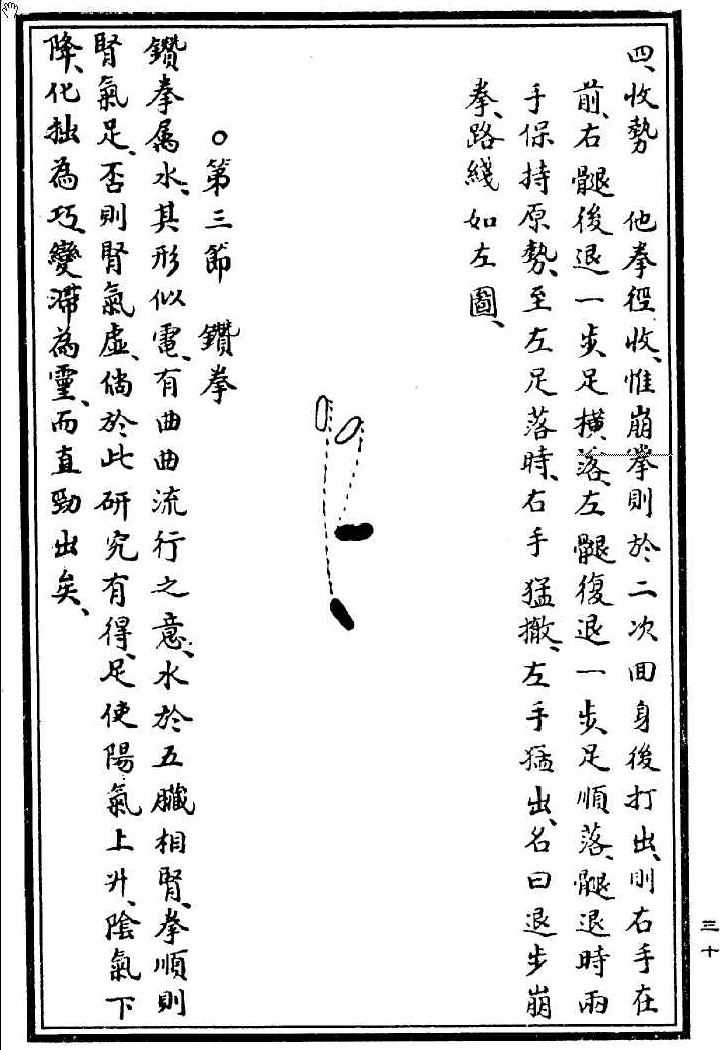 四、收勢　他拳徑收、惟崩拳則於二次回身後打出、則右手在
前、右腿後退一步、足橫落、左腿復退一步、足順落、腿退時兩
手保持原勢、至左足落時、右手猛撤、左手猛出、名曰退步崩
拳、路綫如左圖、
○第三節　鑽拳
鑽拳属水、其形似電、有曲曲流行之意、水於五臟相腎、拳順則
腎氣足、否則腎氣虛、倘於此研究有得、足使陽氣上升、陰氣下
降、化拙為巧、變滯為靈、而直勁出矣、
三十